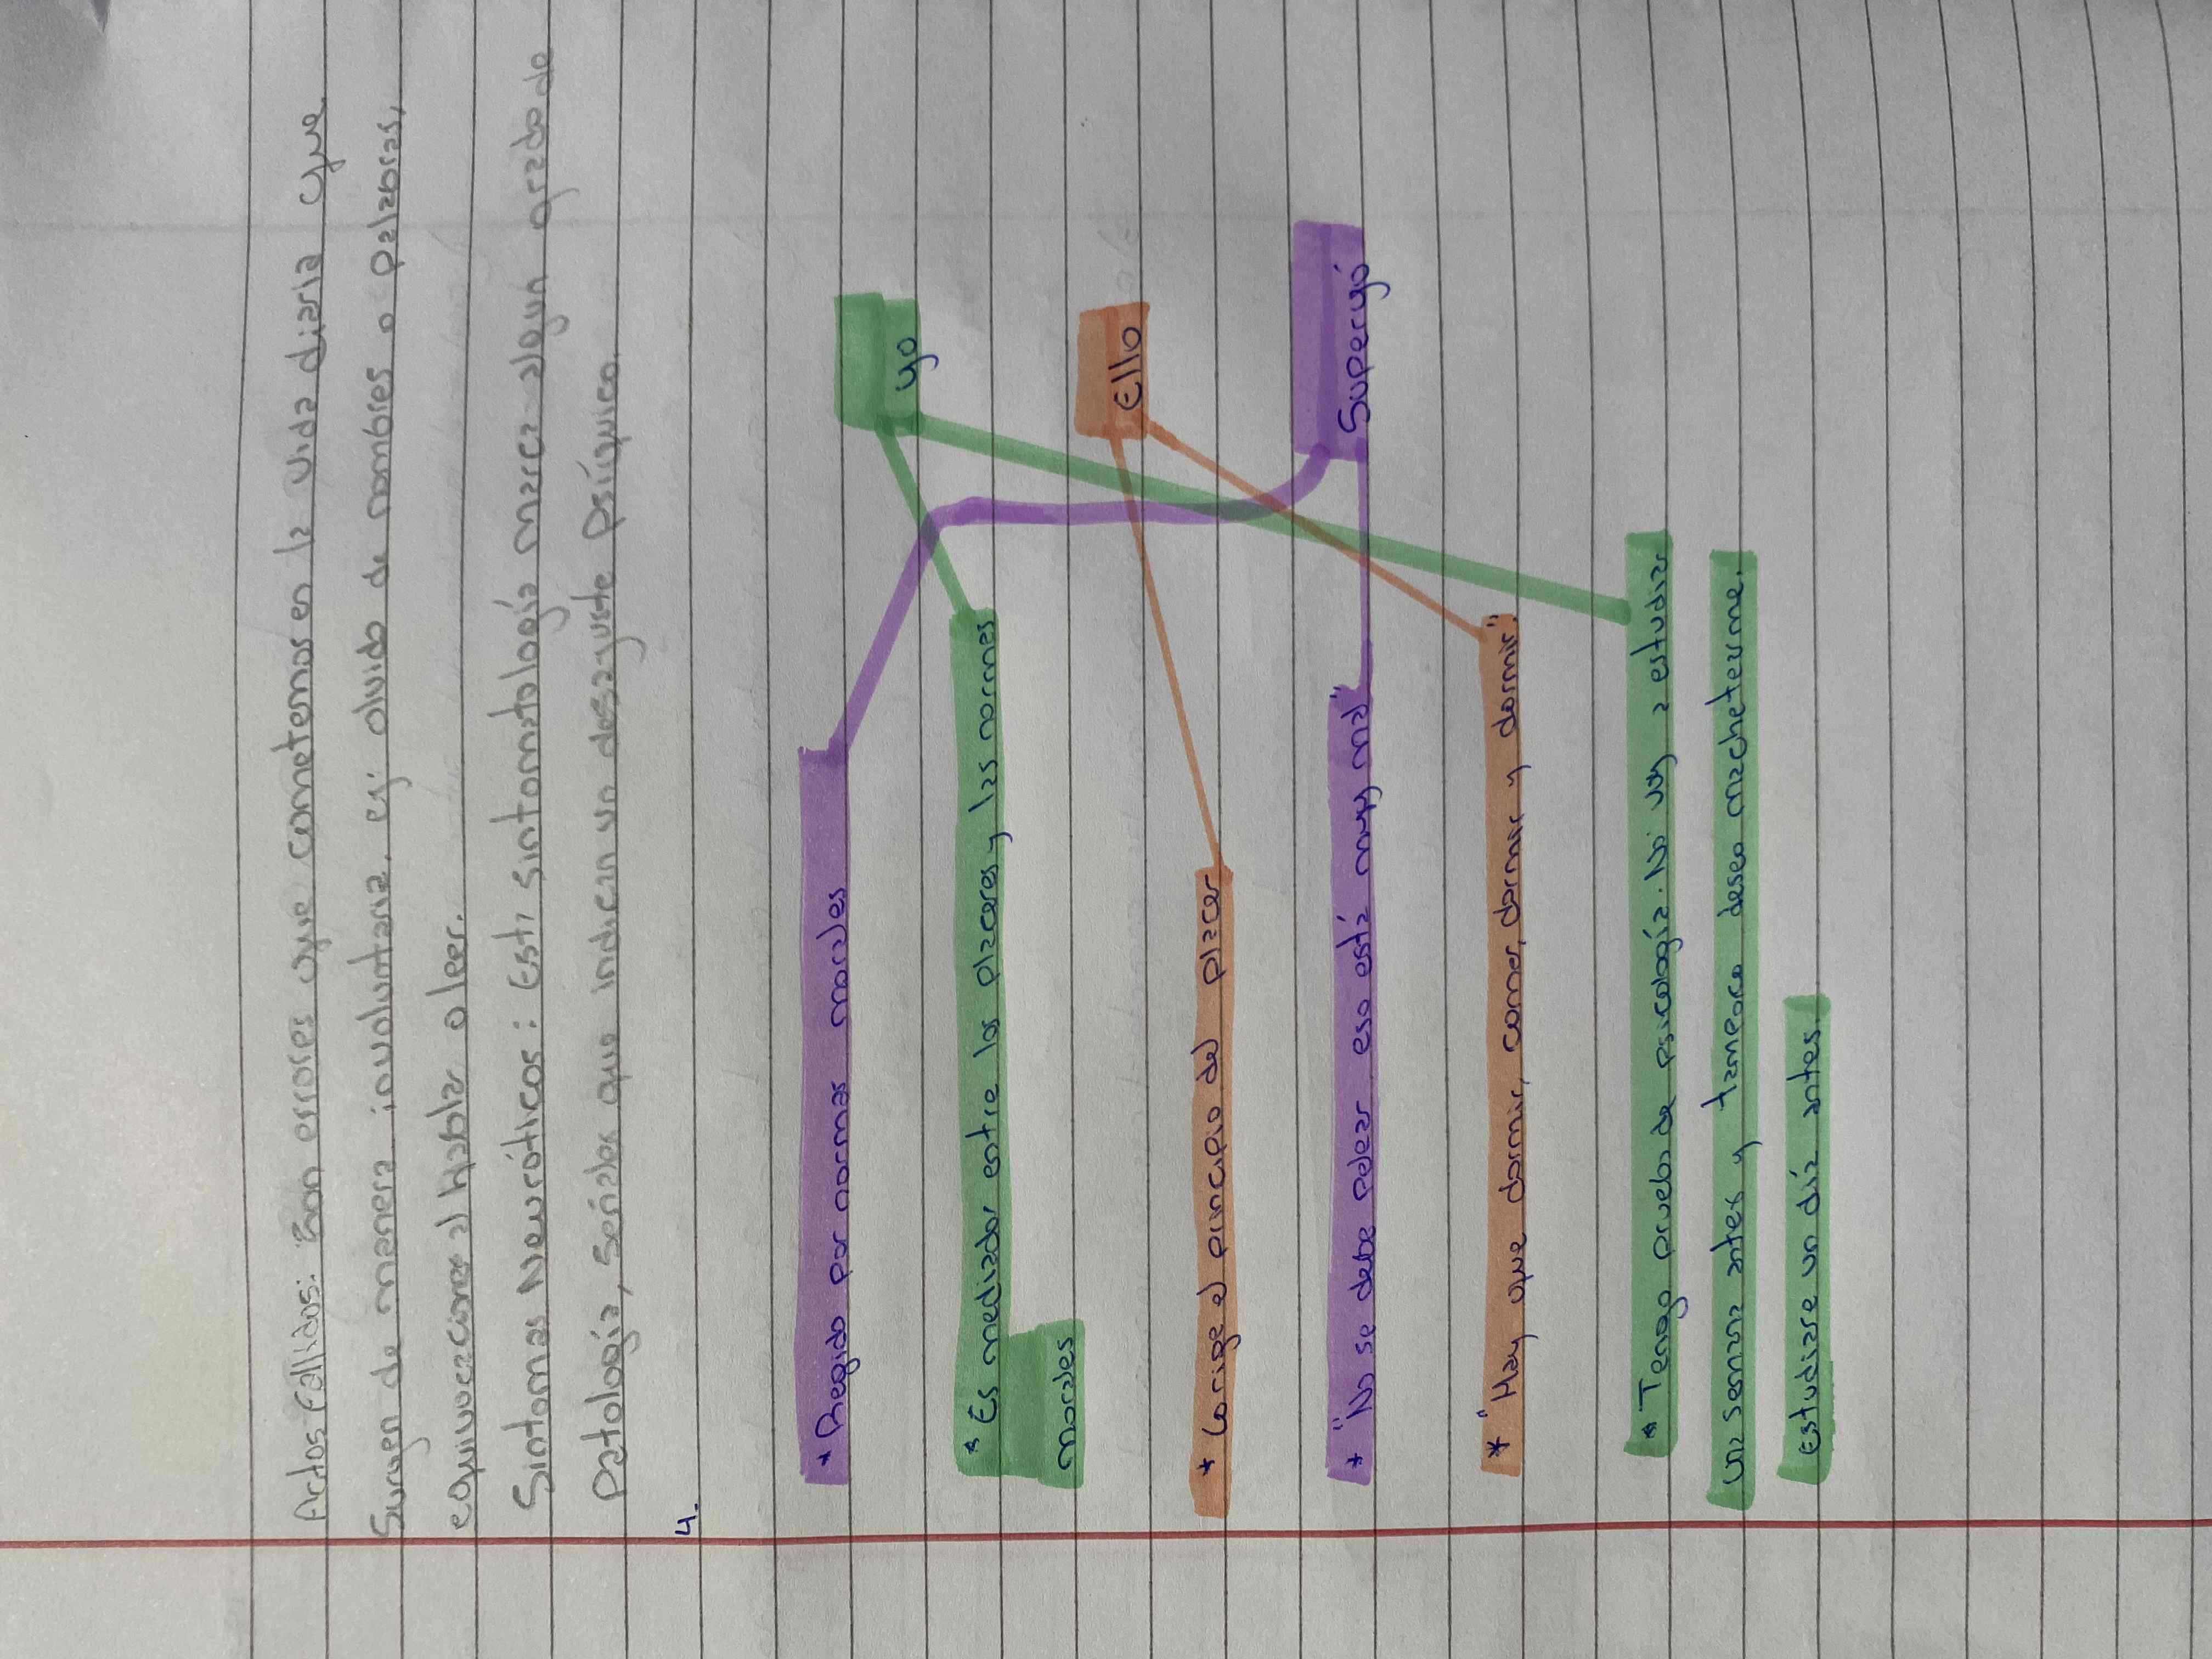 Actos Fallidos: Son errores que cometemos en la vida diaria que
Surgen de manera involuntaria, ej: olvido de nombres o palabras,
equivocaciones al hablar o leer.
Sintomas Neuróticos: Esta sintomatología marca algun grado de
Patología, señales que indican un desajuste psíquico.
4.
* Regido por normas morales
yo
* Es mediador entre los placeres y las normas
morales
Ello
* Corige el principio del placer
Superyó
* "No se debe pelear, eso está muy mal"
* "Hay que dormir, comer, dormir y dormir"
* Tengo prueba de psicología. No voy a estudiar
una semana antes y tampoco deseo machetearme.
Estudiare un día antes.